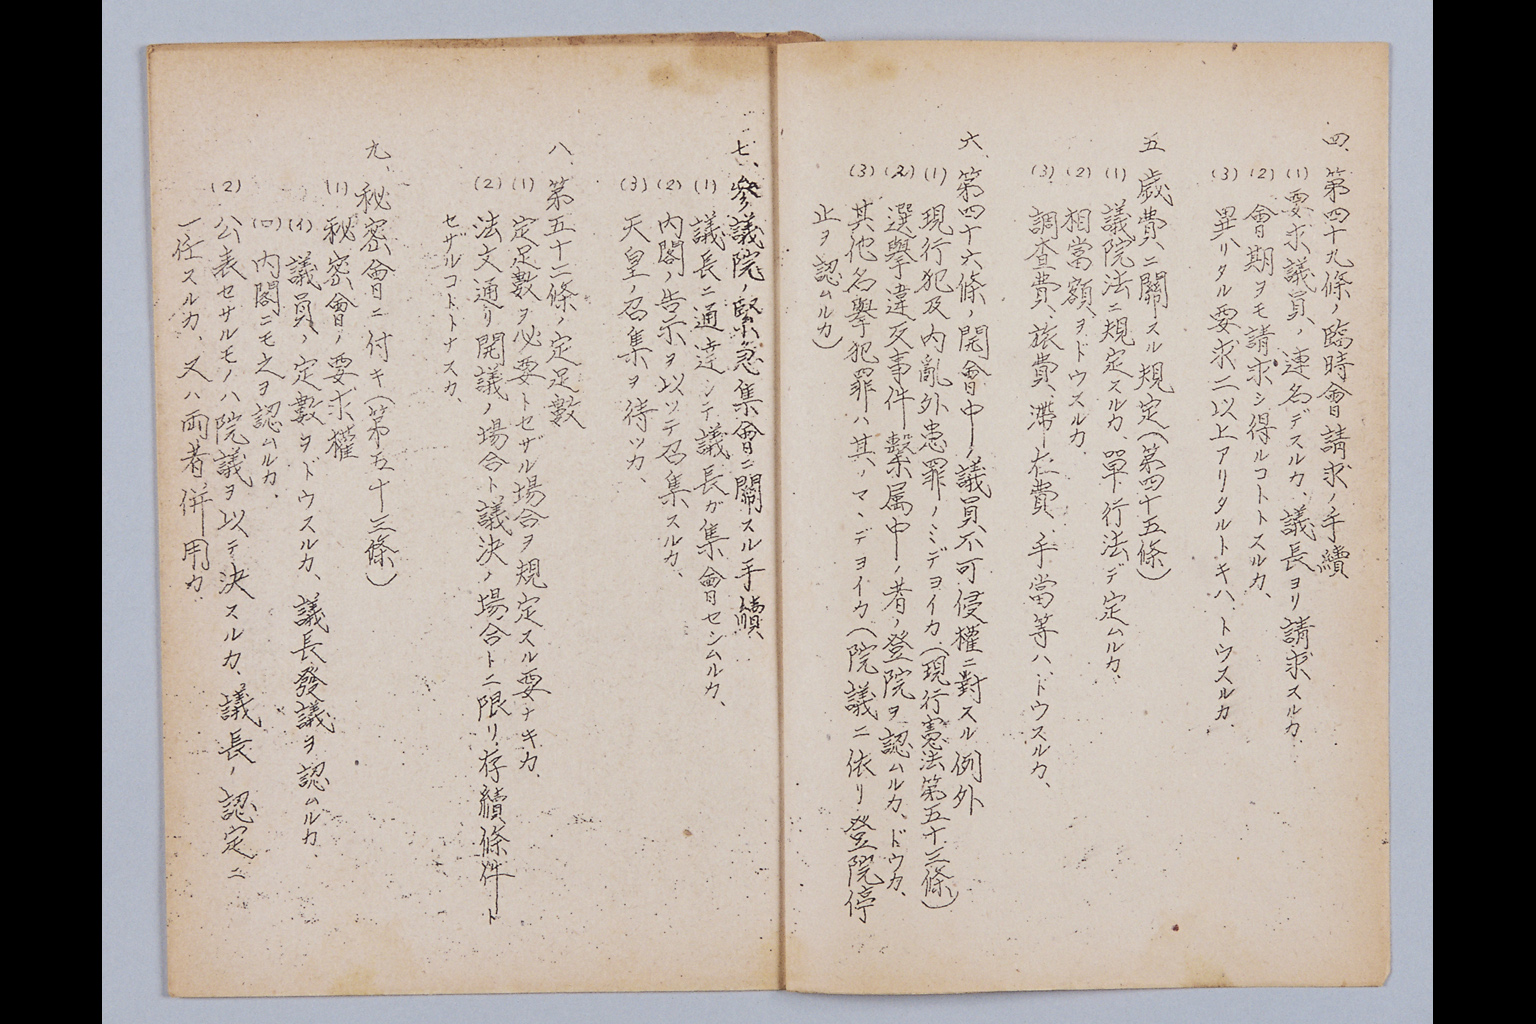 四、第四十九條ノ臨時會請求ノ手續
(1)要求議員ノ連名デスルカ、議長ヨリ請求スルカ、
(2)會期ヲモ請求シ得ルコトトスルカ、
(3)異リタル要求二以上アリタルトキハ、ドウスルカ、
五 歲費ニ關スル規定(第四十五條)
(1)議院法ニ規定スルカ、單行法デ定ムルカ、
(2)相當額ヲドウスルカ、
(3)調査費、旅費、滯在費、手當等ハ、ドウスルカ、
六、第四十六條ノ開會中ノ議員不可侵權ニ對スル例外
(1)現行犯及內亂外患罪ノミデヨイカ、(現行憲法第五十三條)
(2)選擧違反事件繫屬中ノ者ノ登院ヲ認ムルカ、ドウカ、
(3)其他名擧犯罪ハ其ノマヽデヨイカ(院議ニ依リ登院停
止ヲ認ムルカ)
七、參議院ノ緊急集會ニ關スル手續
(1)議長ニ通達シテ議長ガ集會セシムルカ、
(2)內閣ノ告示ヲ以ツテ召集スルカ、
(3)天皇ノ召集ヲ待ツカ、
八、第五十二條ノ定足數
(1)定足數ヲ必要トセザル場合ヲ規定スル要ナキカ、
(2)法文通リ開議ノ場合ト議決ノ場合トニ限リ存續條件ト
セザルコトトナスカ、
九、秘密會ニ付キ(第五十三條)
(1)秘密會ノ要求權
(イ)議員ノ定數ヲドウスルカ、議長發議ヲ認ムルカ、
(ロ)內閣ニモ之ヲ認ムルカ、
(2)公表セサルモノハ院議ヲ以テ決スルカ、議長ノ認定ニ
一任スルカ、又ハ両者併用カ、